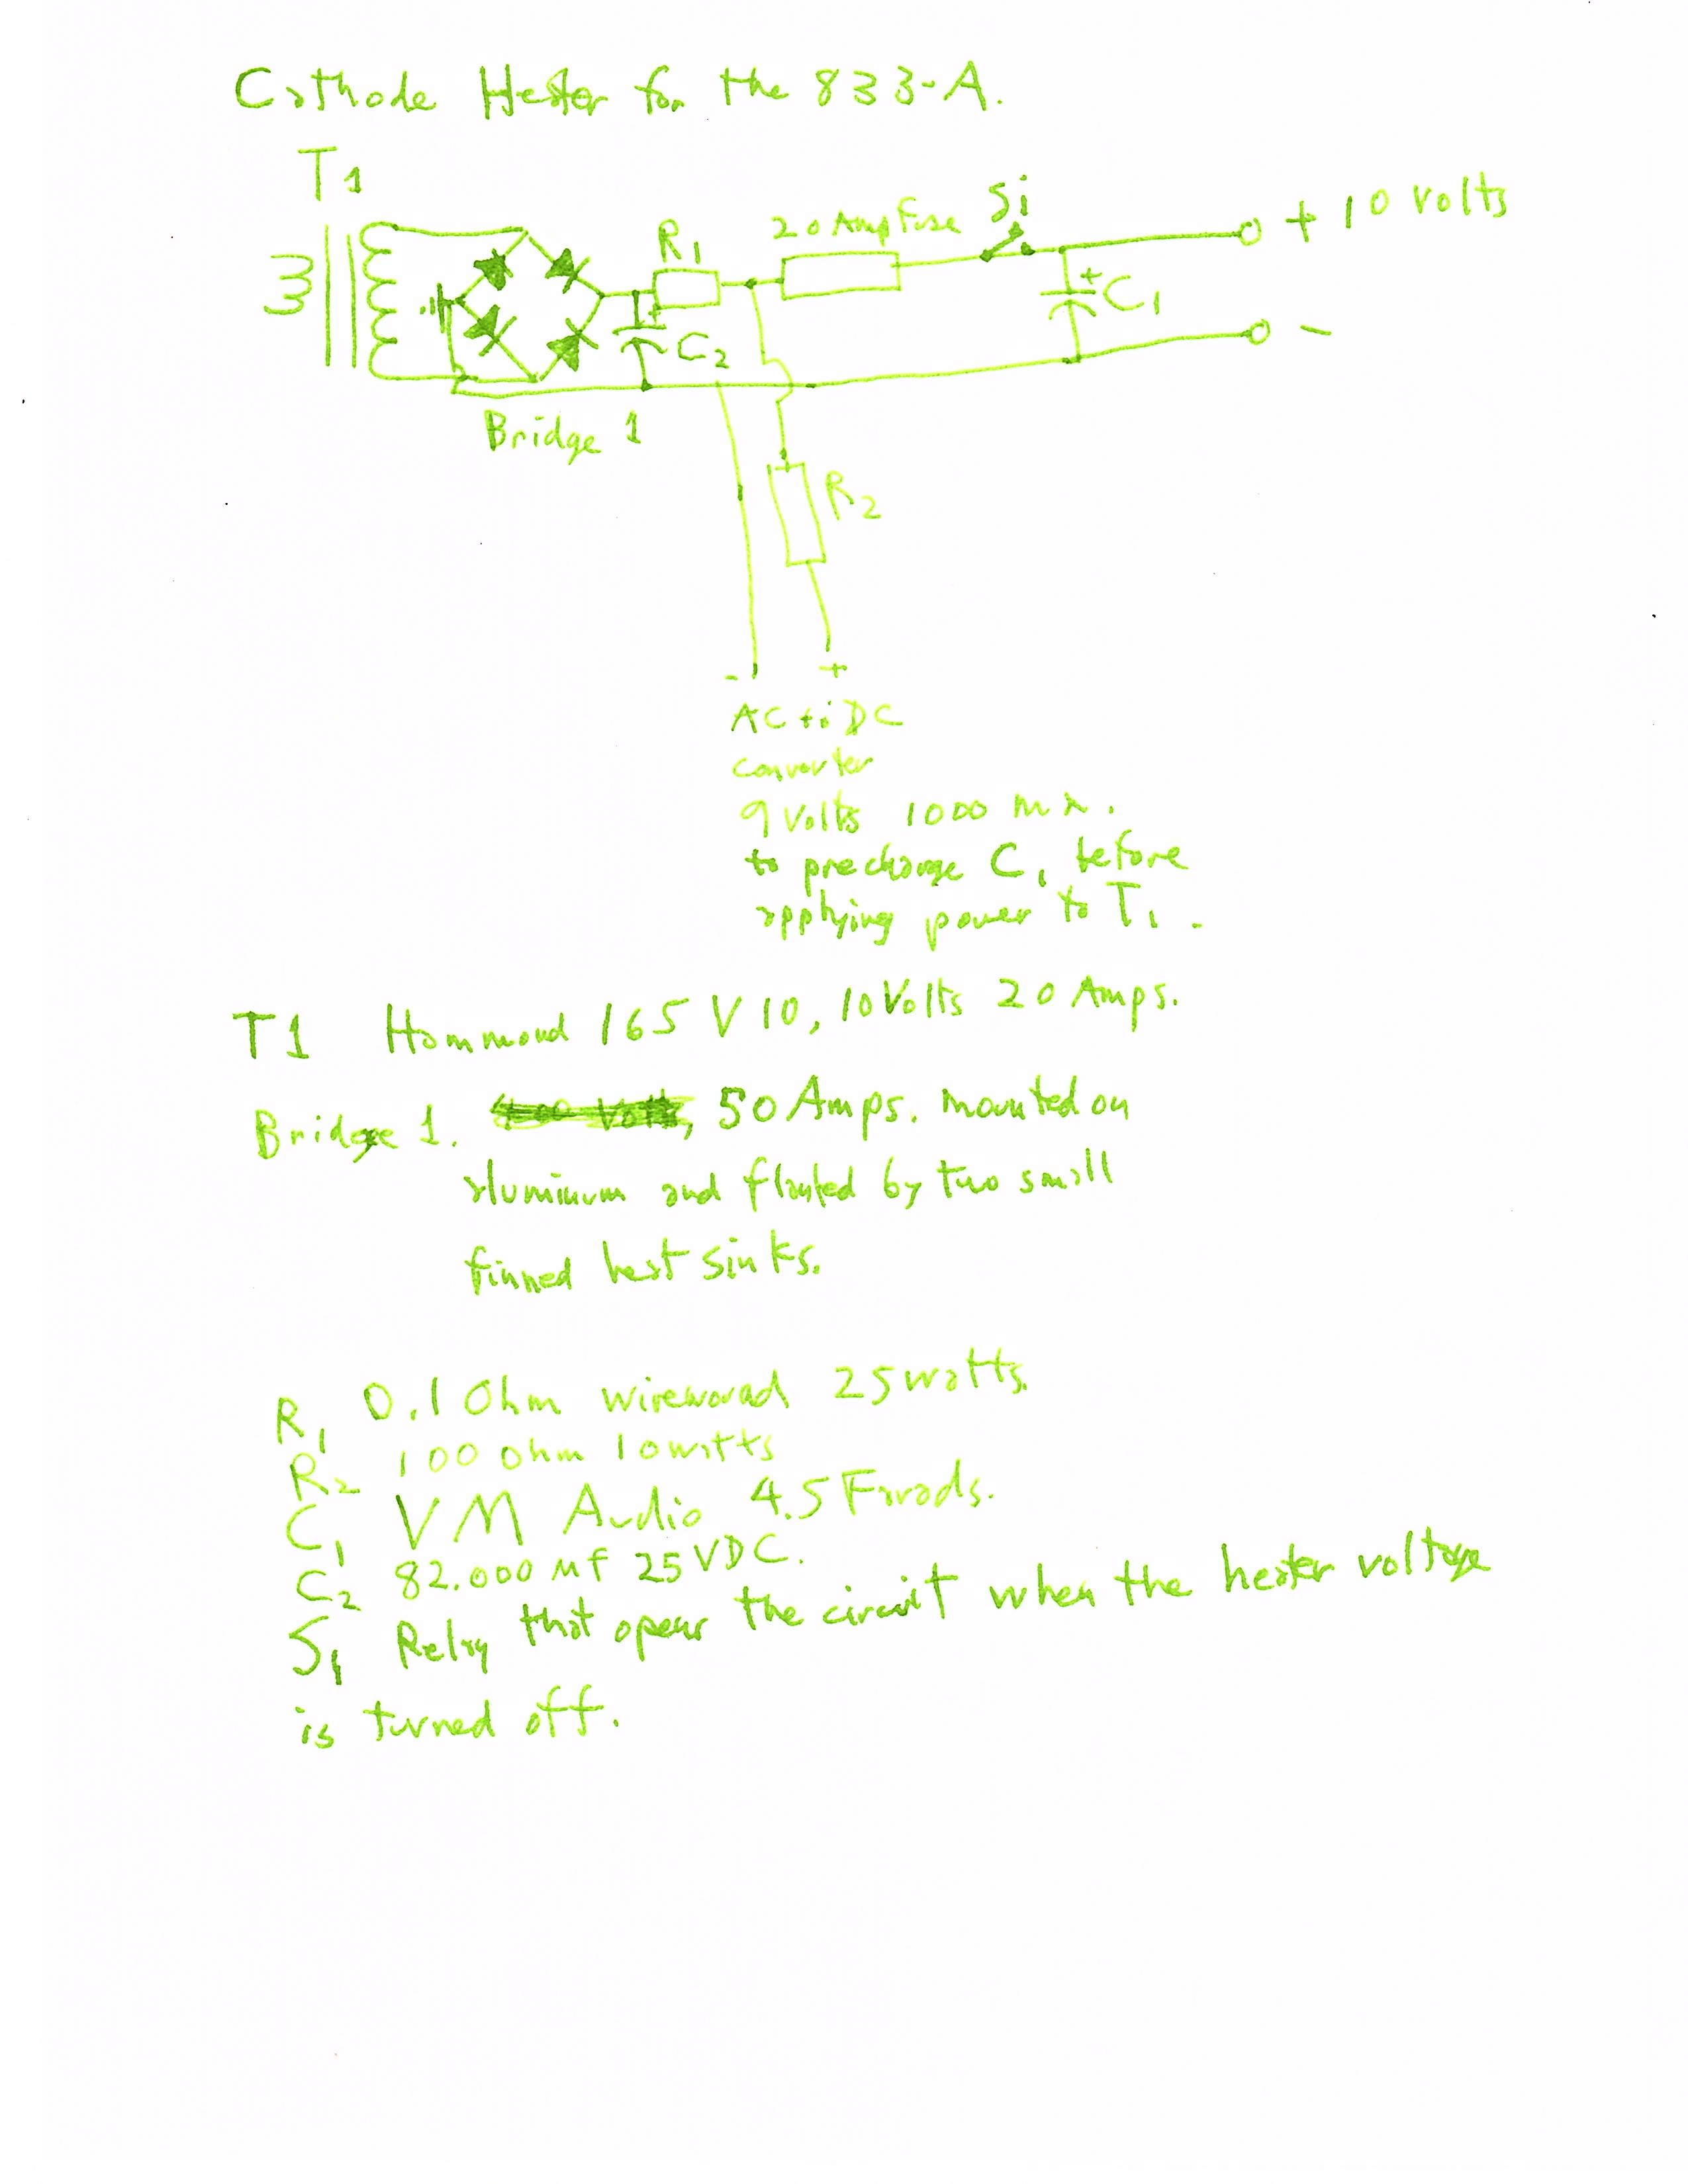 Cathode Heater for the 833-A.
T1
R1
20 Amp Fuse
Si
+ 10 volts
+
C1
+
C2
-
Bridge 1
R2
- +
AC to DC
converter
9 Volts 1000 ma.
to precharge C1 before
applying power to T1.
T1 Hammond 165 V 10, 10 Volts 20 Amps.
Bridge 1. 50 Amps. mounted on
aluminum and flanked by two small
finned heat sinks.
R1 0.1 Ohm wirewound 25 watts
R2 100 Ohm 10 watts
C1 VM Audio 4.5 Farads.
C2 82.000 Mf 25 VDC.
S1 Relay that opens the circuit when the heater voltage
is turned off.